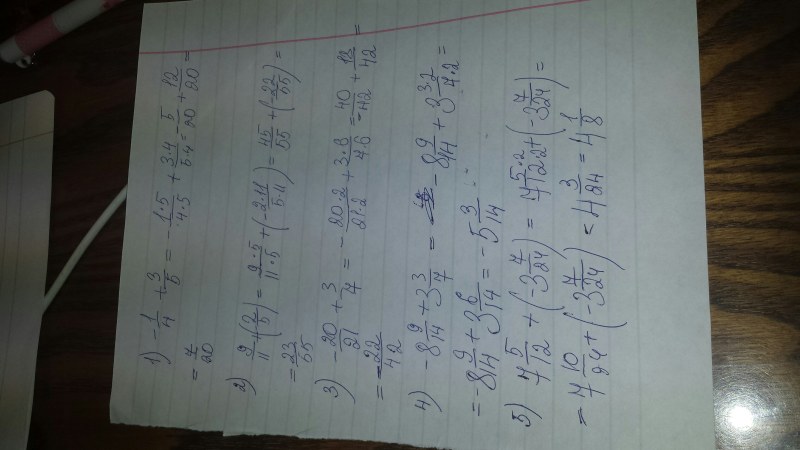 1) -1/4 + 3/5 = -1·5/4·5 + 3·4/5·4 = -5/20 + 12/20 =
= 7/20
2) 9/11 + (-2/5) = 9·5/11·5 + (-2·11/5·11) = 45/55 + (-22/55) =
= 23/55
3) -20/21 + 3/4 = -20·2/21·2 + =
= -22/42
4) -8 9/14 + 3 3/7 = -8 9/14 + 3 3·2/7·2 =
= -8 9/14 + 3 6/14 = -5 3/14
5) 7 5/12 + (-3 7/24) = 7 5·2/12·2 + (-3 7/24) =
= 7 10/24 + (-3 7/24) = 4 3/24 = 4 1/8